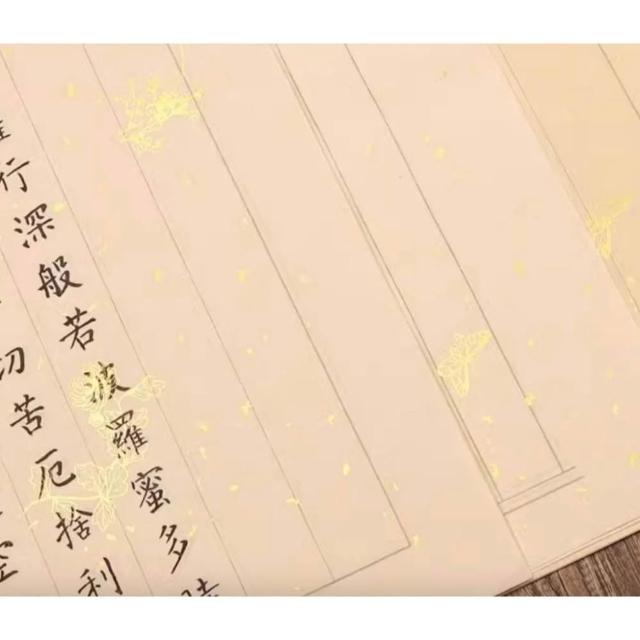 行深般若波羅蜜多時
切苦厄捨利
空